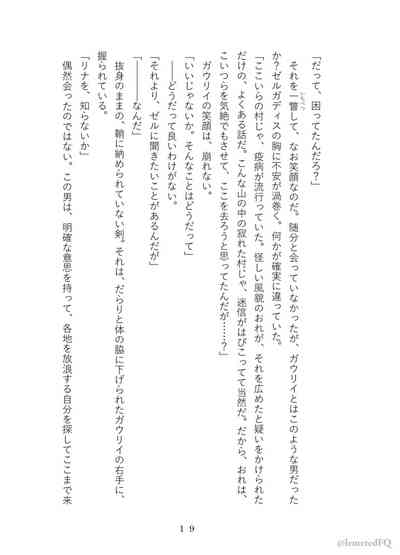 「だって、困ってたんだろ？」
それを一瞥して、なお笑顔なのだ。随分と会っていなかったが、ガウリイとはこのような男だった
いちべつ
か？ゼルガディスの胸に不安が渦巻く。何かが確実に違っていた。
「ここいらの村じゃ、疫病が流行っていた。怪しい風貌のおれが、それを広めたと疑いをかけられた
だけの、よくある話だ。こんな山の中の寂れた村じゃ、迷信がはびこってて当然だ。だから、おれは、
こいつらを気絶でもさせて、ここを去ろうと思ってたんだが……？」
ガウリイの笑顔は、崩れない。
「いいじゃないか。そんなことはどうだって」
――どうだって良いわけがない。
「それより、ゼルに聞きたいことがあるんだが」
「――――なんだ」
抜身のままの、鞘に納められていない剣。それは、だらりと体の脇に下げられたガウリイの右手に、
握られている。
「リナを、知らないか」
偶然会ったのではない。この男は、明確な意思を持って、各地を放浪する自分を探してここまで来
19
@lemetedFQ